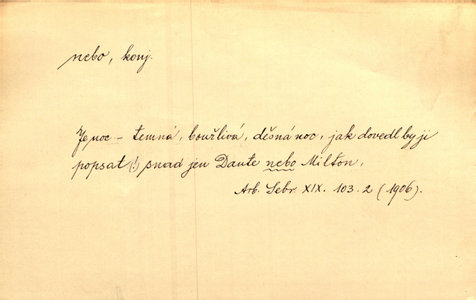 nebo, konj.
Je noc – temná, bouřlivá, děsná noc, jak dovedl by ji
popsat (!) snad jen Dante nebo Milton.
Arb. Sebr. XIX. 103. 2 (1906).